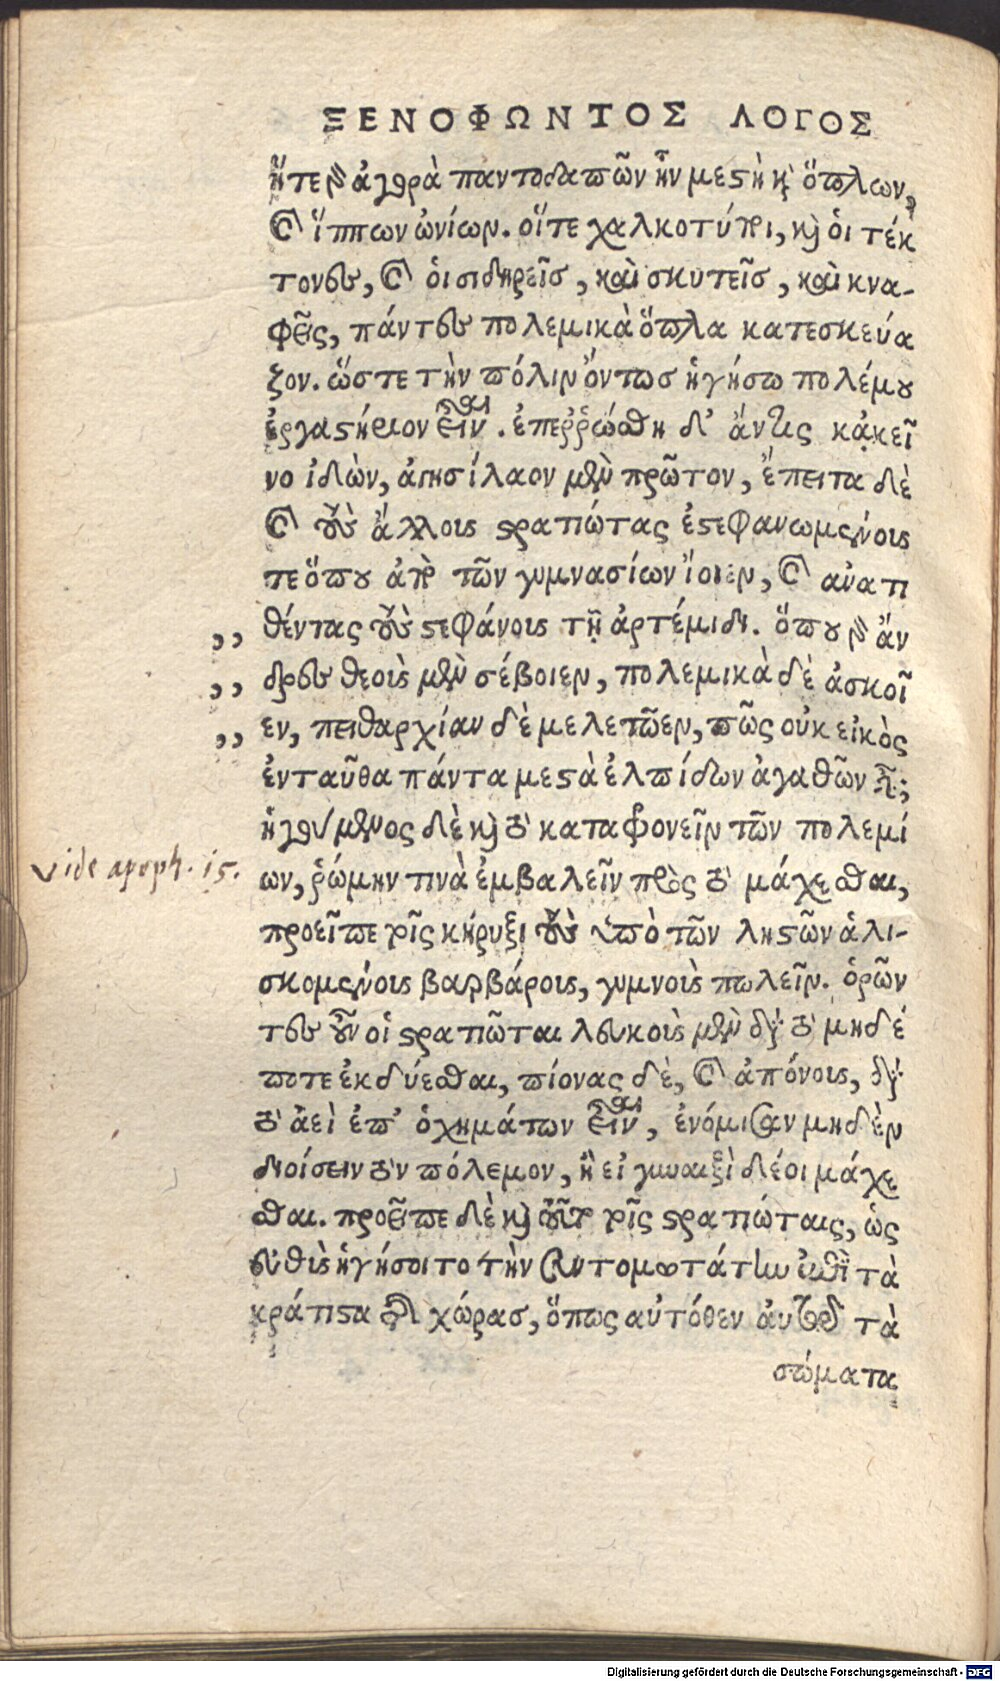 ΞΕΝΟΦΩΝΤΟΣ ΛΟΓΟΣ
ἥτε γὰρ ἀγορὰ παντοδαπῶν ἦν μεστὴ καὶ ὅπλων,
καὶ ἵππων ὠνίων. οἵτε χαλκοτύποι, καὶ οἱ τέκ
τονες, καὶ οἱ σιδηρεῖς, καὶ σκυτεῖς, καὶ κνα-
φεῖς, πάντες πολεμικὰ ὅπλα κατεσκεύα
ζον. ὥστε τὴν πόλιν ὄντως ἡγήσω πολέμου
ἐργαστήριον εἶναι. ἐπεῤῥώσθη δ' ἄντις κἀκεῖ
νο ἰδὼν, ἀγησίλαον μὲν πρῶτον, ἔπειτα δὲ
καὶ τοὺς ἄλλους στρατιώτας ἐστεφανωμένους
τε ὅπου ἀπὸ τῶν γυμνασίων ἴοιεν, καὶ ἀνατι
,, θέντας τοὺς στεφάνους τῇ ἀρτέμιδι. ὅπου γὰρ ἄν
,, δρες θεοὺς μὲν σέβοιεν, πολεμικὰ δὲ ἀσκοῖ
,, εν, πειθαρχίαν δὲ μελετῶεν, πῶς οὐκ εἰκὸς
ἐνταῦθα πάντα μεστὰ ἐλπίδων ἀγαθῶν εἶναι;
ἡγούμενος δὲ καὶ τὸ καταφρονεῖν τῶν πολεμί
vide apoph. 15.
ων, ῥώμην τινὰ ἐμβαλεῖν πρὸς τὸ μάχεσθαι,
προεῖπε τοῖς κήρυξι τοὺς ὑπὸ τῶν λῃστῶν ἁλι-
σκομένους βαρβάρους, γυμνοὺς πωλεῖν. ὁρῶν
τες οὖν οἱ στρατιῶται λευκοὺς μὲν διὰ τὸ μηδέ
ποτε ἐκδύεσθαι, πίονας δὲ, καὶ ἀπόνους, διὰ
τὸ ἀεὶ ἐπ' ὀχημάτων εἶναι, ἐνόμισαν μηδὲν
διοίσειν τὸν πόλεμον, ἢ εἰ γυναιξὶ δέοι μάχε
σθαι. προεῖπε δὲ καὶ τοῦτο τοῖς στρατιώταις, ὡς
εὐθὺς ἡγήσοιτο τὴν συντομωτάτην ἐπὶ τὰ
κράτιστα τῆς χώρας, ὅπως αὐτόθεν αὐτῷ τὰ
σώματα
Digitalisierung gefördert durch die Deutsche Forschungsgemeinschaft - DFG